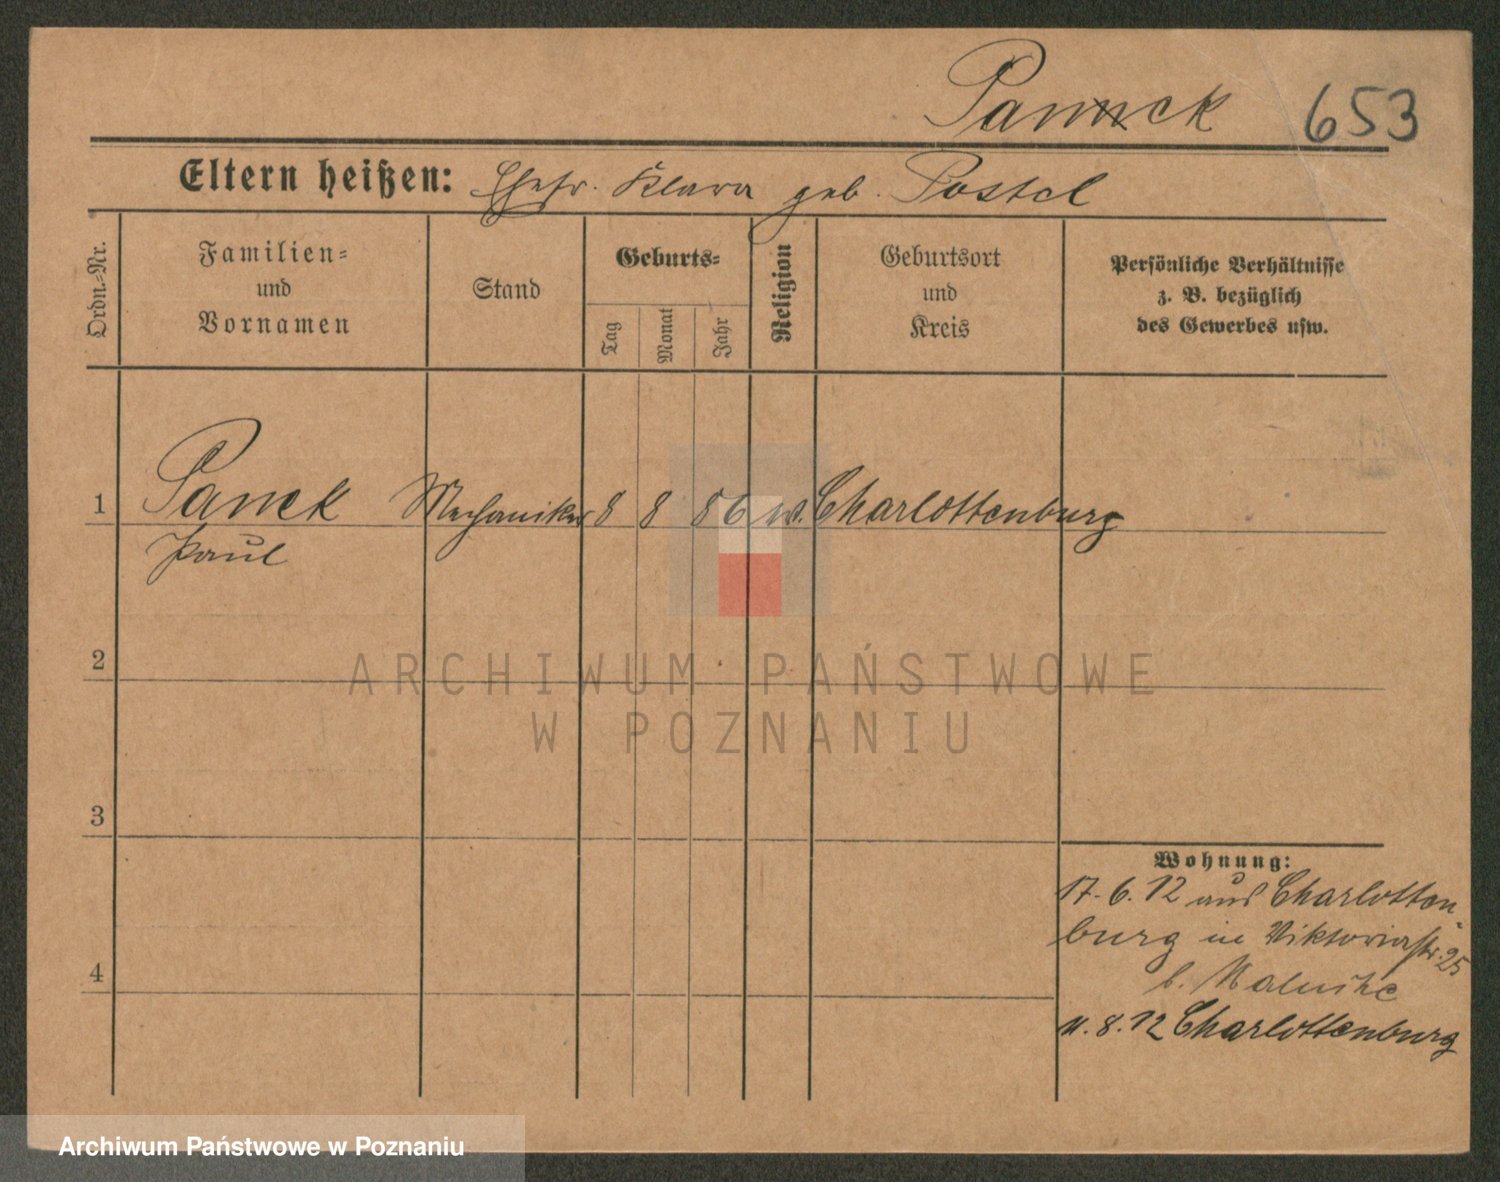 Panck 653
Eltern heißen: Ehefr. Klara geb. Postel
Ordn.-Nr.
Familien-
und
Vornamen
Stand
Geburts-
Tag
Monat
Jahr
Religion
Geburtsort
und
Kreis
Persönliche Verhältnisse
z. B. bezüglich
des Gewerbes usw.
1 Panck Mechaniker 8 8 86 Charlottenburg
Paul
2
ARCHIWUM PAŃSTWOWE
W POZNANIU
3
Wohnung:
17.6.12 aus Charlotten-
burg in Viktoriastr. 25
b.
4
.8.12 Charlottenburg
Archiwum Państwowe w Poznaniu